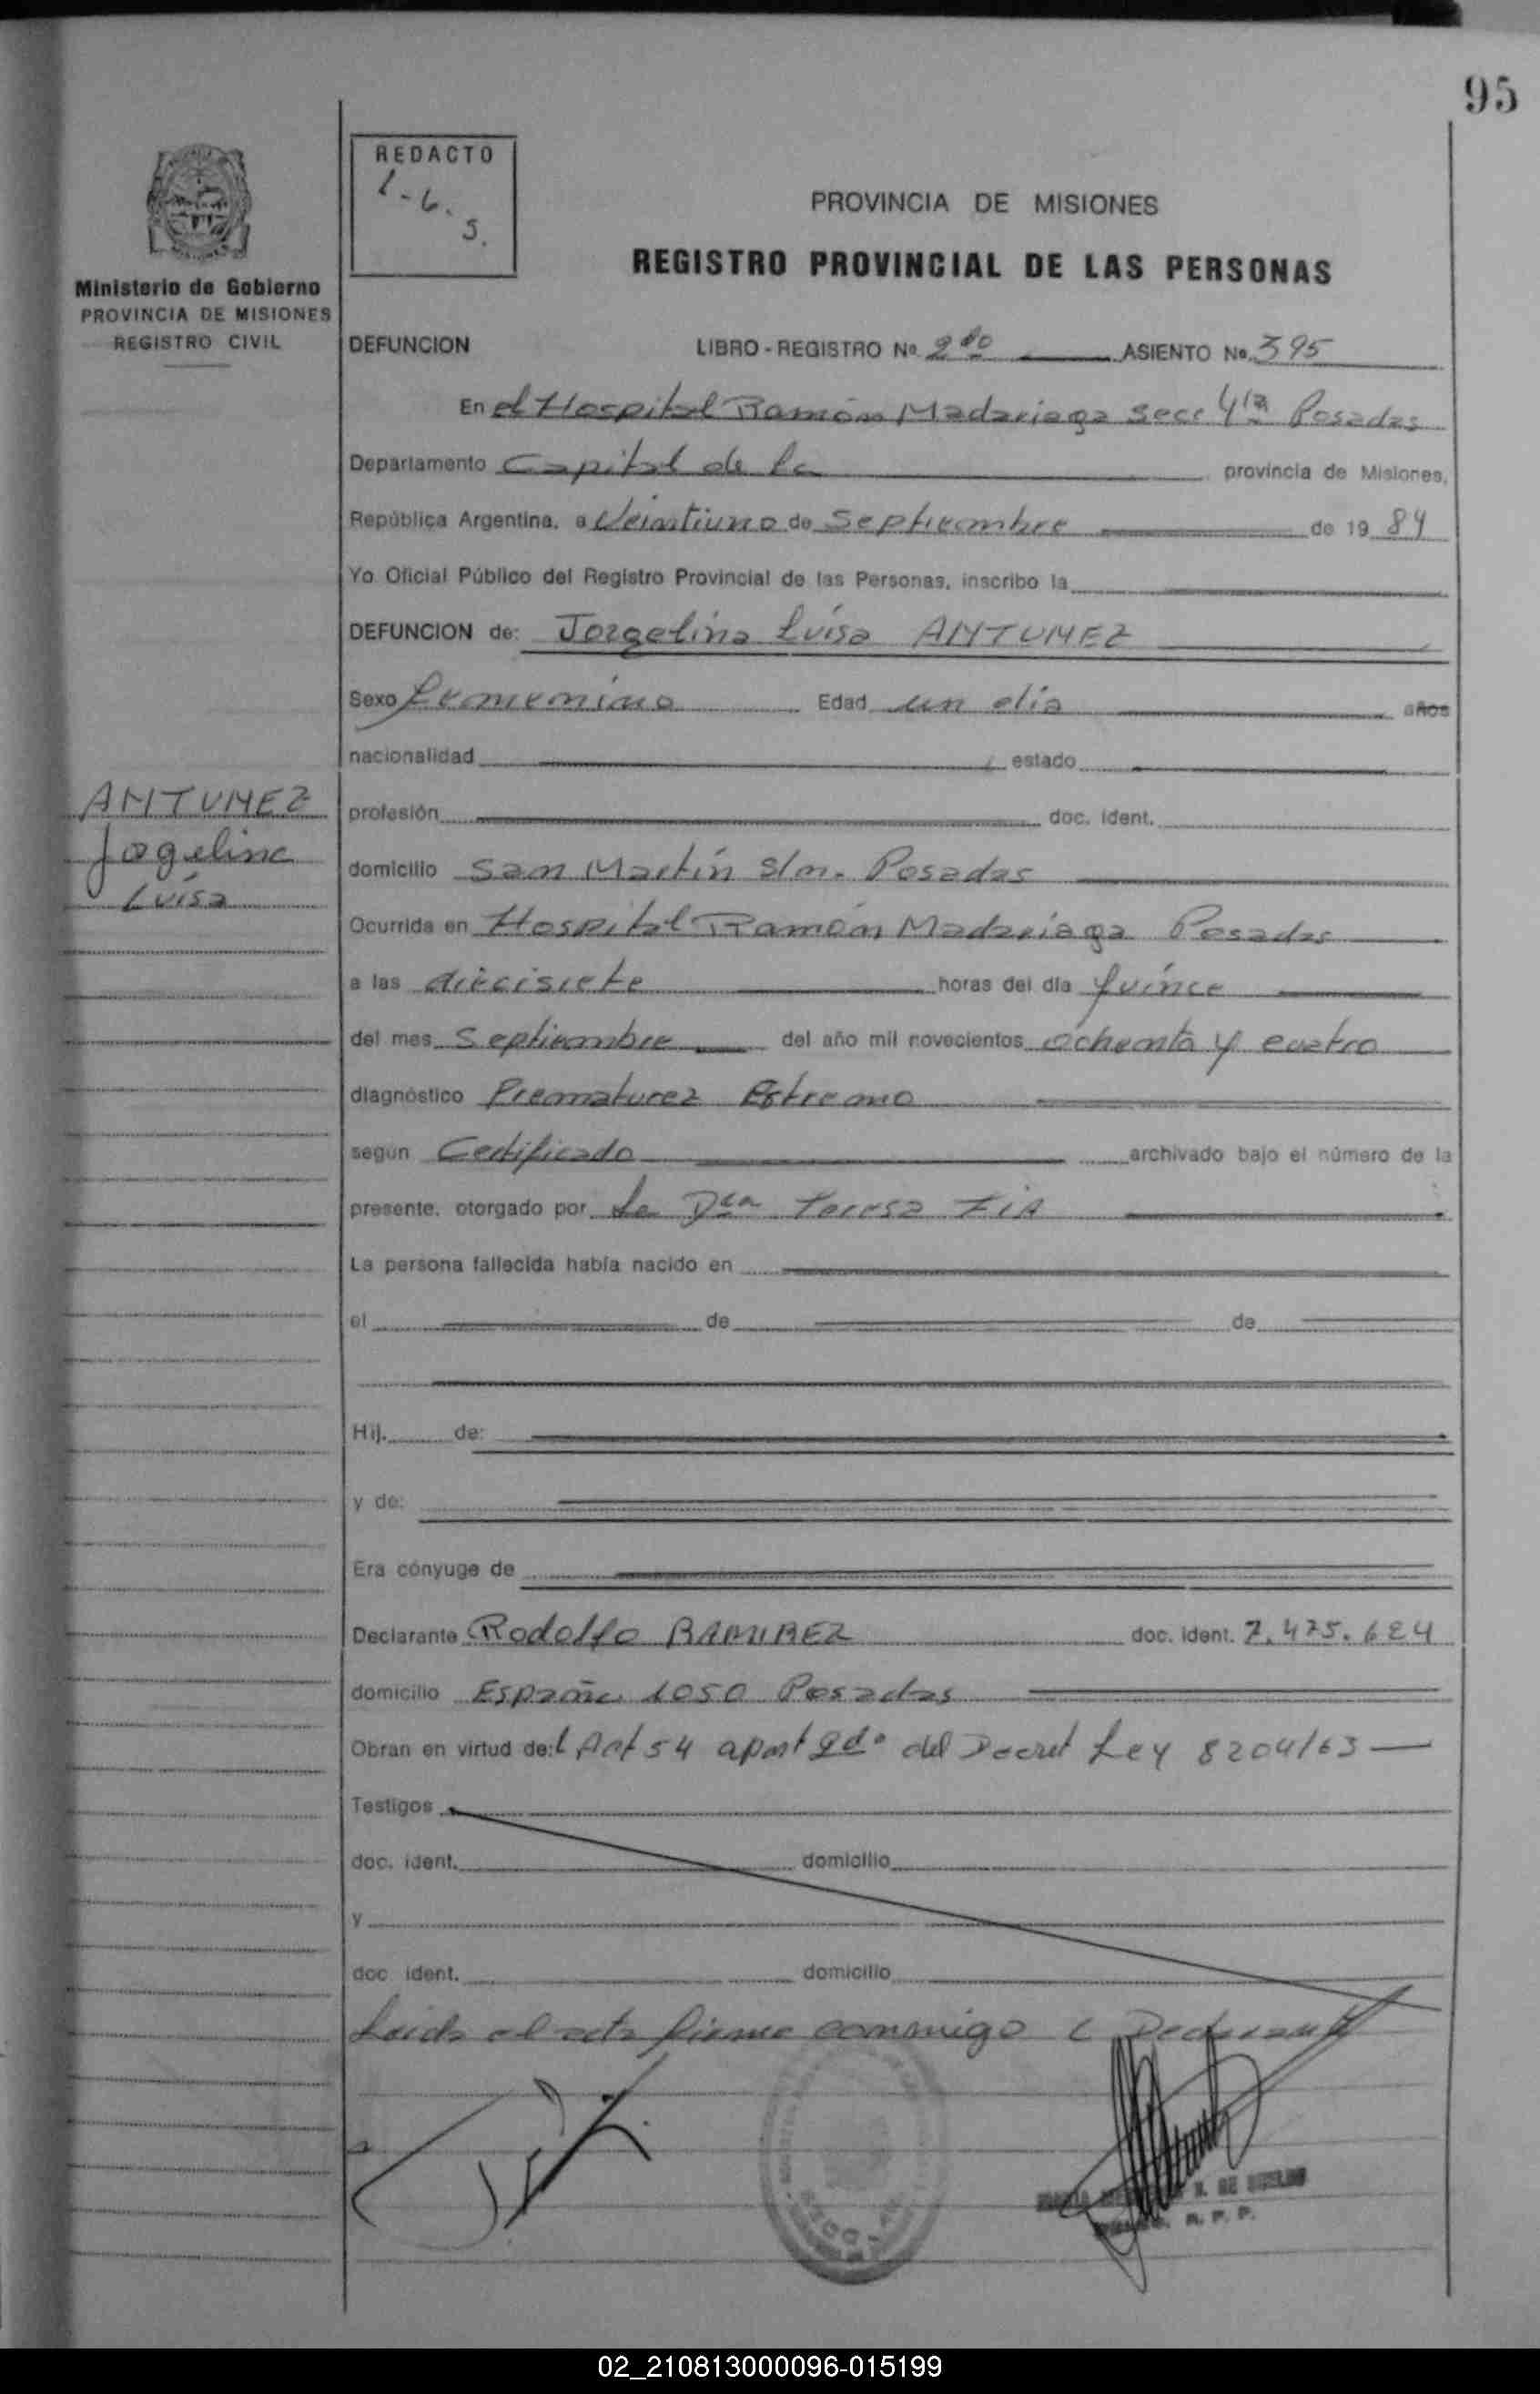 95
REDACTO
1-6.
5.
PROVINCIA DE MISIONES
REGISTRO PROVINCIAL DE LAS PERSONAS
Ministerio de Gobierno
PROVINCIA DE MISIONES
REGISTRO CIVIL
DEFUNCION LIBRO - REGISTRO No. 2do ASIENTO No. 395
En el Hospital Ramón Madariaga Secc 4ta Posadas
Departamento Capital de la provincia de Misiones,
República Argentina, a Veintiuno de Septiembre de 19 84
Yo Oficial Público del Registro Provincial de las Personas, inscribo la
DEFUNCION de: Jorgelina Luisa ANTUNEZ
Sexo femenino Edad un día años
nacionalidad estado
ANTUNEZ
Jogelina
Luisa
profesión doc. ident.
domicilio San Martín s/n. Posadas
Ocurrida en Hospital Ramón Madariaga Posadas
a las diecisiete horas del día quince
del mes Septiembre del año mil novecientos ochenta y cuatro
diagnóstico Prematurez Extremo
según Certificado archivado bajo el número de la
presente, otorgado por La Dra Teresa
La persona fallecida había nacido en
el de de
Hij. de:
y de:
Era cónyuge de
Declarante Rodolfo RAMIREZ doc. ident. 7.475.624
domicilio España 1050 Posadas
Obran en virtud de: l Art 54 apart 2do del Decret Ley 8204/63
Testigos
doc. ident. domicilio
y
doc. ident. domicilio
Leida el acta firma conmigo Declarante
R. P. P.
02_210813000096-015199